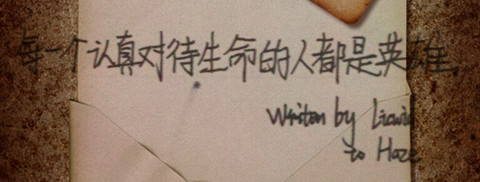 每一个认真对待生命的人都是英雄.
Written by
to Haze